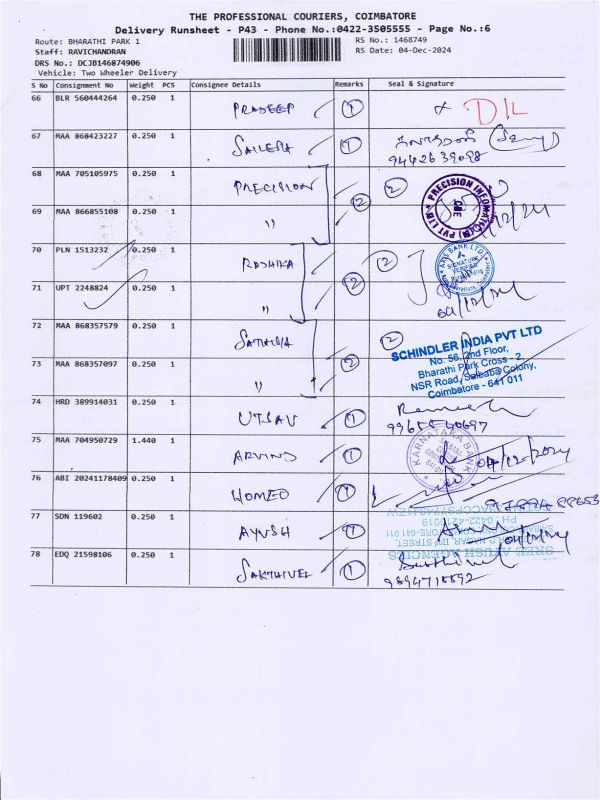 THE PROFESSIONAL COURIERS, COIMBATORE
Delivery Runsheet - P43 - Phone No.:0422-3505555 - Page No.:6
Route: BHARATHI PARK 1
RS No.: 1468749
Staff: RAVICHANDRAN
RS Date: 04-Dec-2024
DRS No.: DCJB146874906
Vehicle: Two Wheeler Delivery
S No Consignment No Weight PCS Consignee Details Remarks Seal & Signature
66 BLR 560444264 0.250 1 PRADEEP 1 DIL
67 MAA 868423227 0.250 1 SAILESH 1
9442639098
68 MAA 705105975 0.250 1 PRECISION 2 2
PRECISION INFOMATIC (M) PVT LTD
CBE
69 MAA 866855108 0.250 1 "
70 PLN 1513232 0.250 1 RADHIKA 2 2
AXIS BANK LTD
SIGNATURE VERIFIED
71 UPT 2248824 0.250 1 "
04/12/24
72 MAA 868357579 0.250 1 SATHIYA 2 2
SCHINDLER INDIA PVT LTD
No. 56, 2nd Floor,
Bharathi Park Cross - 2,
NSR Road, Saibaba Colony,
Coimbatore - 641 011
73 MAA 868357097 0.250 1 "
74 HRD 389914031 0.250 1 UTSAV 1
Ramesh
75 MAA 704950729 1.440 1 ARVIND 1
KARNATAKA BANK
04/12/2024
76 ABI 20241178409 0.250 1 HOMEO 1
77 SDN 119602 0.250 1 AYUSH 1
SREE AYUSH AGENCIES
PH : 0422-4216019
78 EDQ 21598106 0.250 1 SAKTHIVEL 1
Sakthivel
9894718892